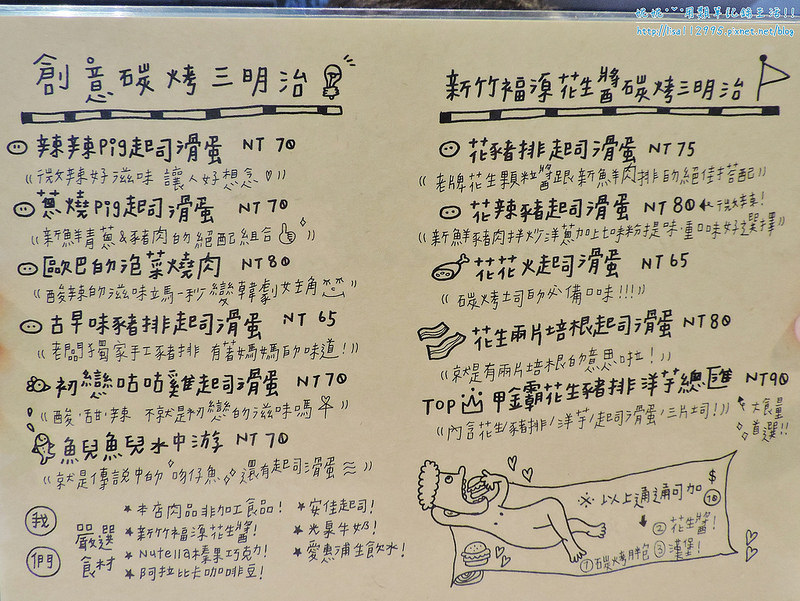 妮妮˙ˇ˙用類單記錄生活!!
http://lisa112975.pixnet.net/blog
創意碳烤三明治
辣辣Pig起司滑蛋 NT 70
微辣好滋味 讓人好想念
蔥燒Pig起司滑蛋 NT 70
新鮮青蔥&豬肉的絕配組合
歐巴的泡菜燒肉 NT 80
酸辣的滋味立馬一秒變韓劇女主角
古早味豬排起司滑蛋 NT 65
老闆獨家手工豬排 有著媽媽的味道!
初戀咕咕雞起司滑蛋 NT 70
酸·甜·辣 不就是初戀的滋味嗎
魚兒魚兒水中游 NT 70
就是傳說中的 吻仔魚 還有起司滑蛋
我們 嚴選食材
★本店肉品非加工食品!
★新竹福源花生醬!
★Nutella榛果巧克力!
★阿拉比卡咖啡豆!
★安佳起司!
★光泉牛奶!
★愛惠浦生飲水!
新竹福源花生醬碳烤三明治
花豬排起司滑蛋 NT 75
老牌花生顆粒醬跟新鮮肉排的絕佳搭配
花辣豬起司滑蛋 NT 80 ←微辣!
新鮮豬肉拌炒洋蔥加上咖哩粉提味·重口味好選擇
花花火起司滑蛋 NT 65
碳烤土司的必備口味!!!
花生兩片培根起司滑蛋 NT 80
就是有兩片培根的意思啦!
TOP 甲金霸花生豬排洋芋總匯 NT 90
內含花生/豬排/洋芋/起司滑蛋/三片土司!
大食量首選!!
※以上通通可加 $10
②花生醬!
①碳烤麵包 ③漢堡!